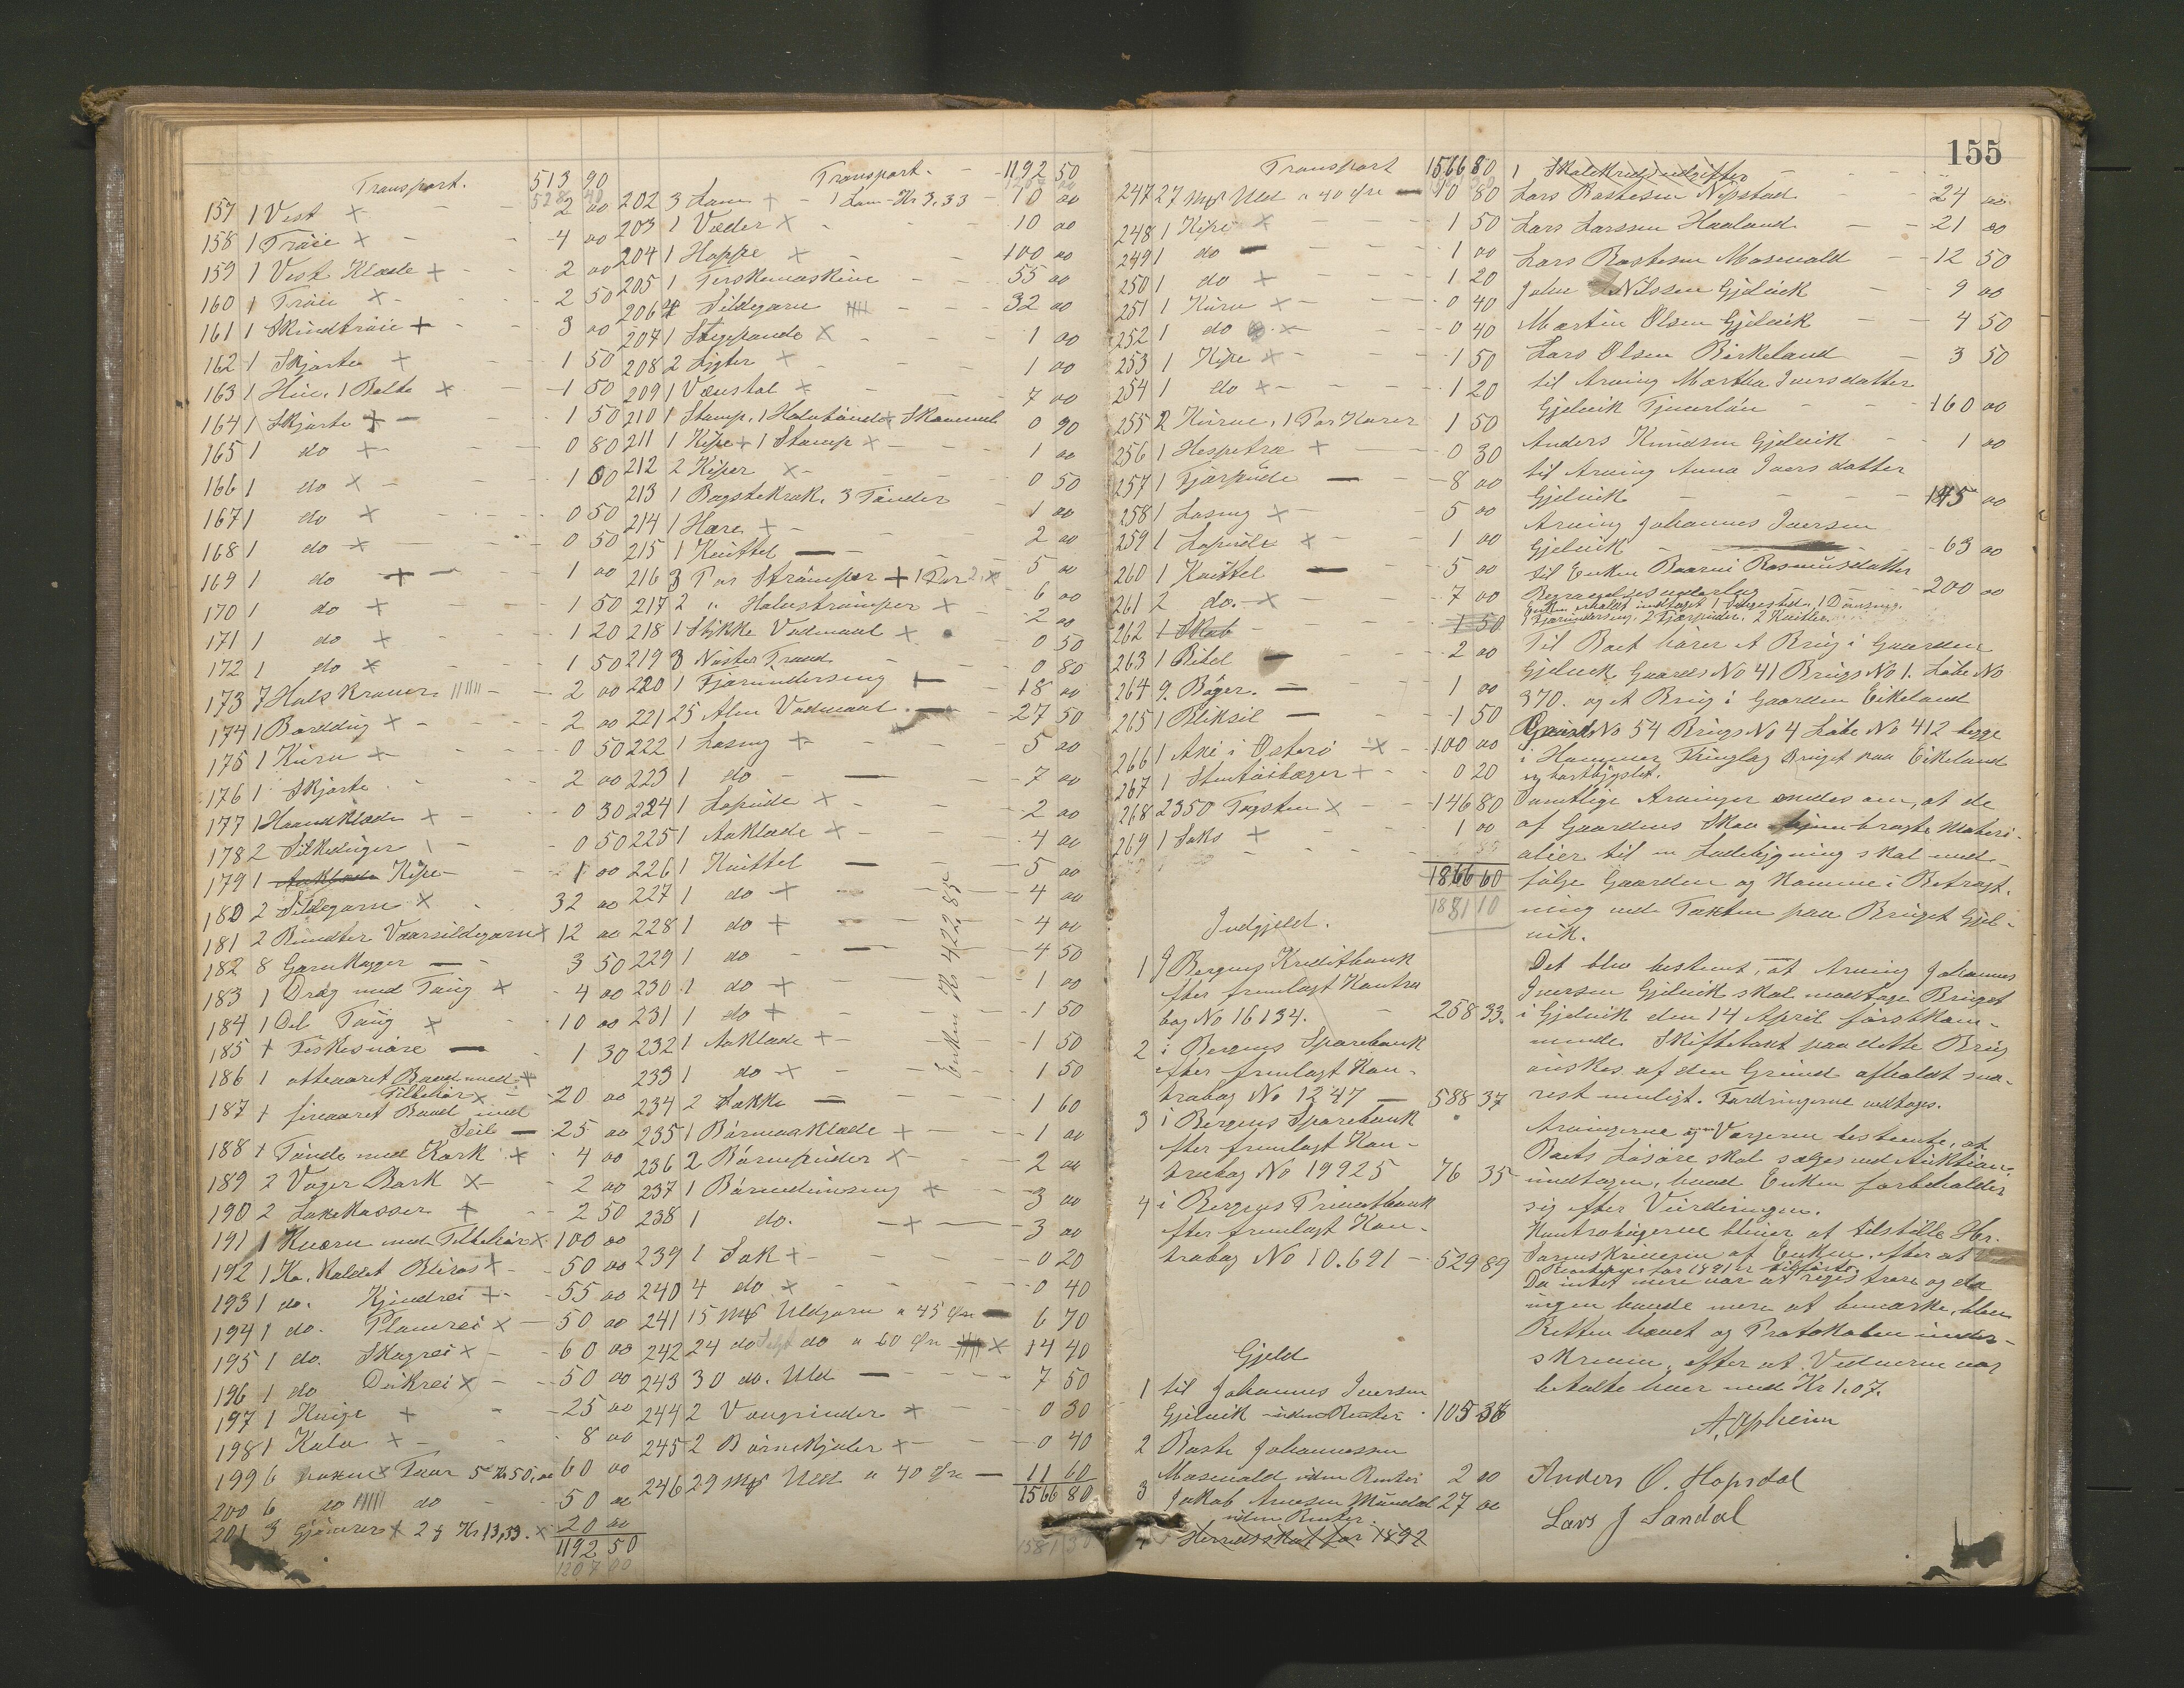 Transport. 513 90
528 40
157 1 Vest × 2 00
158 1 Trøie × 4 00
159 1 Vest Klæde + 2 00
160 1 Trøie × 2 50
161 1 Skindtrøie + 3 00
162 1 Skjorte + 1 50
163 1 Hue, 1 Belte × 1 50
164 1 Skjorte + 1 50
165 1 do + 0 80
166 1 do × 1 00
167 1 do × 0 50
168 1 do × 0 50
169 1 do + 1 00
170 1 do + 1 50
171 1 do × 1 20
172 1 do × 1 50
173 7 Halskraver 2 00
174 1 Borddug × 2 00
175 1 Kurv + 0 50
176 1 Skjorte 2 00
177 1 Haandklæde + 0 30
178 2 Silkeduger 0 50
179 1 Kipe 1 00
180 2 Sildegarn × 32 00
181 2 Bundter Vaarsildegarn × 12 00
182 8 Garnkagger 3 50
183 1 Drag med Taug × 4 00
184 1 Del Taug × 10 00
185 1 Fiskesnøre 1 30
186 1 otteaaret Baad med
Tilbehør × 20 00
187 1 fireaaret Baad med
Seil 25 00
188 1 Tønde med Bark × 4 00
189 2 Voger Bark × 2 00
190 2 Laxekasser + 2 50
191 1 Kværn med Tilbehør × 100 00
192 1 Ko, kaldet Bliros + 50 00
193 1 do. Kjindrei + 55 00
194 1 do. Plomrei × 50 00
195 1 do. Skogrei × 60 00
196 1 do Dokrei × 50 00
197 1 Kvige + 25 00
198 1 Kalv × 8 00
199 6 voxne Faar 5 Kr 50,00 60 00
200 6 do do 50 00
201 3 Gjømrer × 2 f Kr 13,33. × 20 00
1192 50
1207 00
Transport. 1192 50
202 3 Lam + 1 Lam Kr 3,33 10 00
203 1 Væder × 10 00
204 1 Hoppe × 100 00
205 1 Terskemaskine 55 00
206 4 Sildegarn 32 00
207 1 Stegpande × 1 00
208 2 Lygter × 1 00
209 1 Vævstol × 7 00
210 1 Stamp, 1 Halvtønde, Skammel 0 90
211 1 Kipe + 1 Stamp × 1 00
212 2 Kiper × 0 50
213 1 Bagstekrak, 3 Tønder 1 00
214 1 Hære + 2 00
215 1 Knittel 5 00
216 3 Par Strømper + 1 Par 6 00
217 2 " Halvstrømper × 2 00
218 1 Stykke Vadmaal × 0 50
219 3 Nøster Traad 0 80
220 1 Fjærunderseng + 18 00
221 25 Alen Vadmaal 27 50
222 1 Loseng + 5 00
223 1 do 7 00
224 1 Lopude × 2 00
225 1 Aaklæde × 4 00
226 1 Knittel 5 00
227 1 do + 4 00
228 1 do + 4 00
229 1 do 4 50
230 1 do + 1 00
231 1 do + 1 50
232 1 Aaklæde + 1 50
233 1 do × 1 50
234 2 Sække 1 60
235 1 Børneaaklæde + 1 00
236 2 Børnepuder × 2 00
237 1 Børnedunseng × 3 00
238 1 do. + 3 00
239 1 Sæk + 0 20
240 4 do × 0 40
241 15 Uldgarn a 45 Øre 6 70
242 24 do do a 60 Øre × 14 40
243 30 do. Uld 7 50
244 2 Vævgrinder × 0 30
245 2 Børnekjoler + 0 40
246 29 Uld a 40 Øre 11 60
1566 80
1581 30
Enken Kr 422,85
Transport 1566 80
247 27 Uld a 40 Øre 10 80
248 1 Kipe × 1 50
249 1 do 1 00
250 1 do + 1 20
251 1 Kurv × 0 40
252 1 do × 0 40
253 1 Kipe × 1 50
254 1 do + 1 20
255 2 Kurve, 1 Par Karer 1 50
256 1 Hespetræ + 0 30
257 1 Fjærpude 8 00
258 1 Loseng × 5 00
259 1 Lopude × 1 00
260 1 Knittel 5 00
261 2 do. × 7 00
262 1 Skab 1 50
263 1 Bibel 2 00
264 9 Bøger. 1 00
265 1 Bliksil 1 50
266 1 Axe i Osterø × 100 00
267 1 Stentøibæger + 0 20
268 2350 Tagsten × 146 80
269 1 Saks + 1 00
1866 60
1881 10
Indgjeld.
1 I Bergens Kreditbank
efter fremlagt Kontra
bog No 16134. 258 33.
2 i Bergens Sparebank
efter fremlagt Kon-
trabog No 1247 588 37
3 i Bergens Sparebank
efter fremlagt Kon-
trabog No 19925 76 35
4 i Bergens Privatbank
efter fremlagt Kon-
trabog No 10.691 529 89
Gjeld
1 til Johannes Iversen
Gjelvik uden Renter 105 38
2 Baste Johannessen
Mosevold uden Renter 2 00
3 Jakob Arnesen Mundal 27 00
uden Renter.
4 Herredsskat for 1892
155
1 Skolekredsudgifter
Lars Bastesen Nipstad 24 00
Lars Larssen Haaland 21 00
Lars Bastesen Mosevold 12 50
John Nilssen Gjelvik 9 00
Martin Olsen Gjelvik 4 50
Lars Olsen Birkeland 3 50
til Arving Martha Iversdatter
Gjelvik Tjenerløn 160 00
Anders Knudsen Gjelvik 1 00
til Arving Anna Iversdatter
Gjelvik 145 00
Arving Johannes Iversen
Gjelvik 63 00
til Enken Baarni Rasmusdatter
Begravelsesudlæg 200 00
Enken erholdt indtaget 1 Sengested, 1 Dunseng.
1 Fjærunderseng, 2 Fjærpuder, 2 Knitler.
Til Boet hører et Brug i Gaarden
Gjelvik Gaards No 41 Brugs No 1. Løbe No
370. og et Brug i Gaarden Eikeland
Gaards No 54 Brugs No 4 Løbe No 412 begge
i Hammer Thinglag Bruget paa Eikeland
er bortbygslet.
Samtlige Arvinger enedes om, at de
af Gaardens Skov hjembragte Materi-
alier til en Ladebygning skal med-
følge Gaarden og komme i Betragt-
ning ved Taxten paa Bruget Gjel-
vik.
Det blev bestemt, at Arving Johannes
Iversen Gjelvik skal modtage Bruget
i Gjelvik den 14 April førstkom-
mende. Skiftetaxt paa dette Brug
ønskes af den Grund afholdt sna-
rest muligt. Fordringerne vedtoges.
Arvingerne og Værgerne bestemte, at
Boets Løsøre skal sælges ved Auktion,
undtagen, hvad Enken forbeholder
sig efter Vurderingen.
Kontrabøgerne bliver at tilstille Hr.
Sorenskriveren af Enken, efter at
Renterne for 1891 er tilførte.
Da intet mere var at registrere og da
ingen havde mere at bemærke, blev
Retten hævet og Protokolen under-
skreven, efter at Vidnerne var
betalte hver med Kr 1.07.
A. Opheim
Anders O. Hopsdal
Lars J Sandal